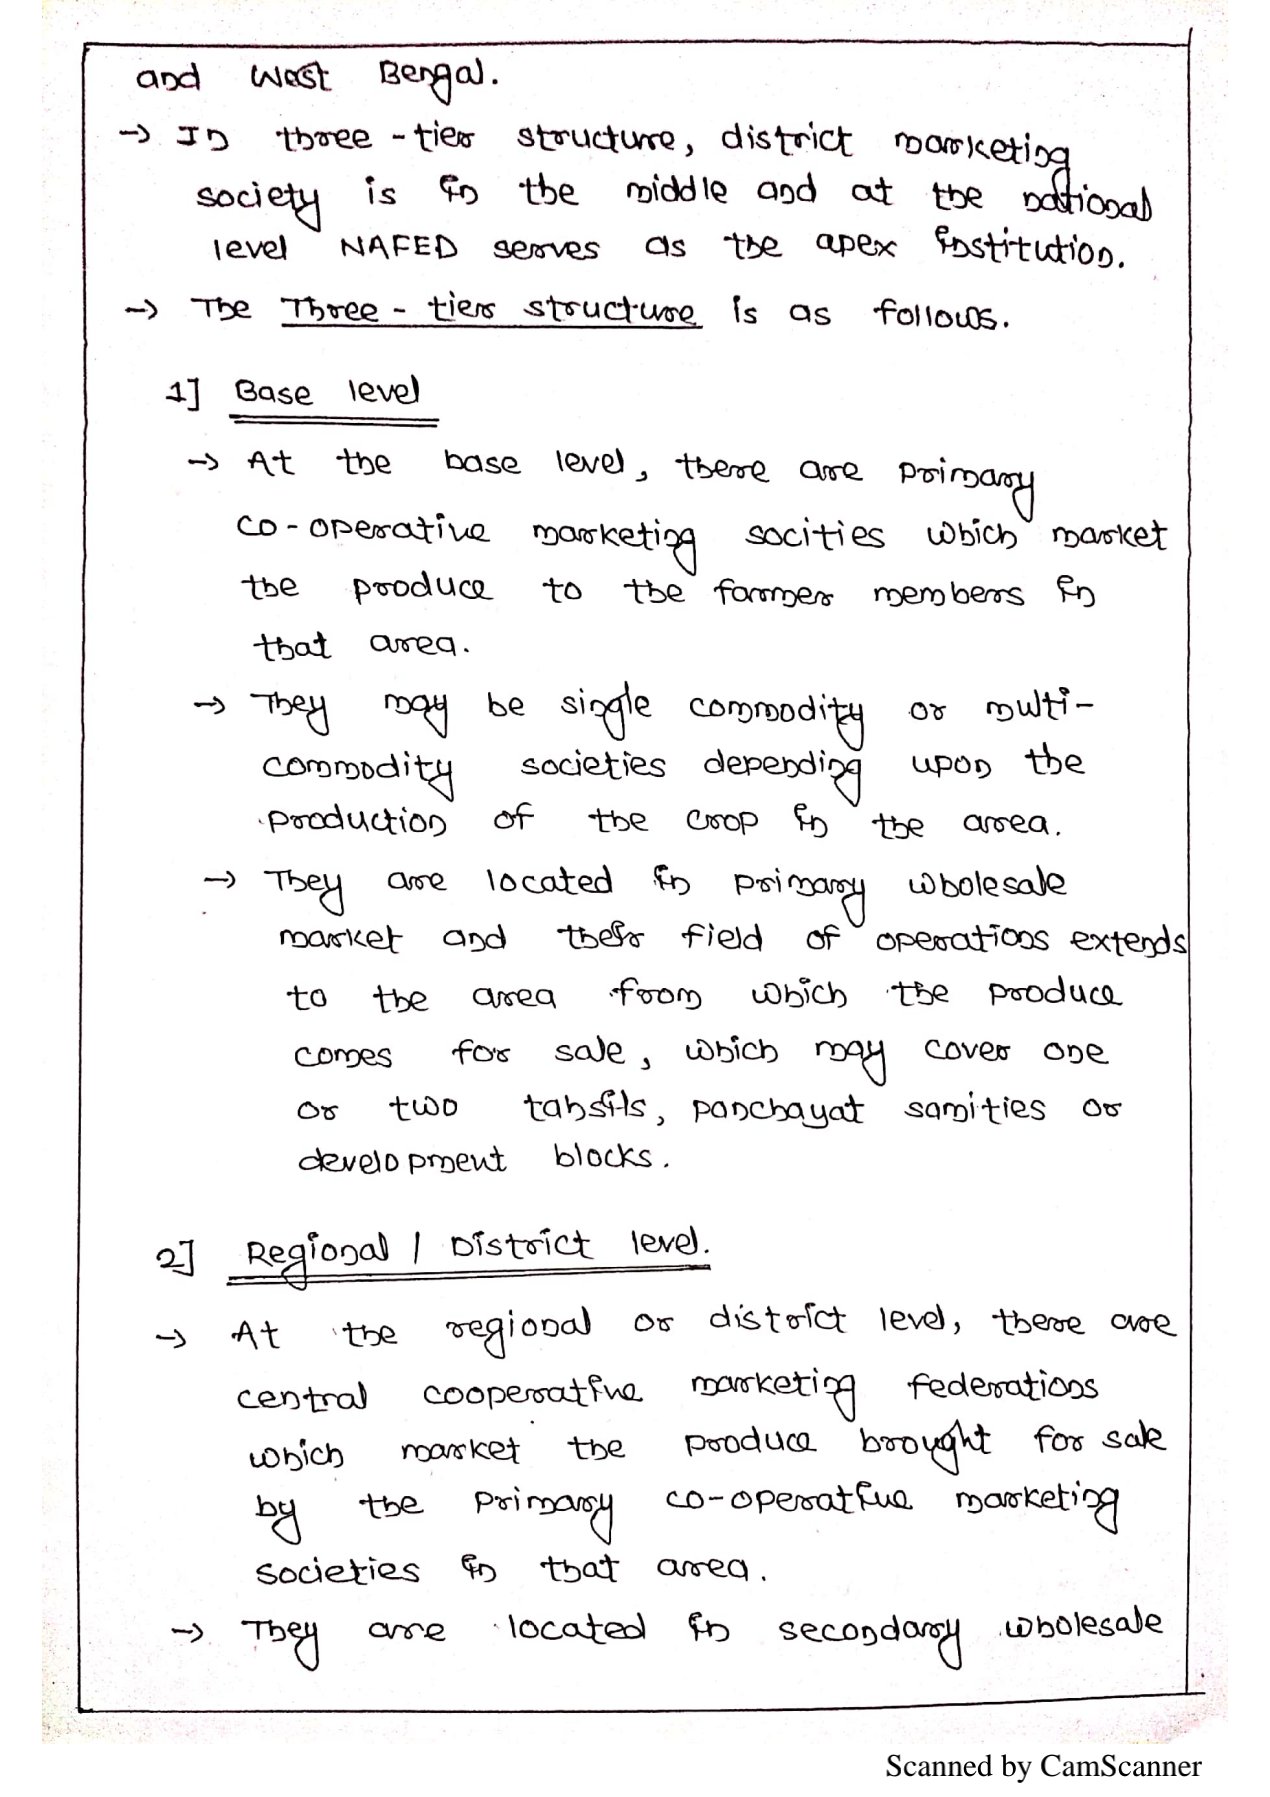 and West Bengal.
→ In three-tier structure, district marketing
society is in the middle and at the national
level NAFED serves as the apex institution.
→ The Three-tier structure is as follows.
1] Base level
→ At the base level, there are primary
co-operative marketing socities which market
the produce to the farmer members in
that area.
→ They may be single commodity or multi-
commodity societies depending upon the
production of the crop in the area.
→ They are located in primary wholesale
market and their field of operations extends
to the area from which the produce
comes for sale, which may cover one
or two tahsils, panchayat samities or
development blocks.
2] Regional / District level.
→ At the regional or district level, there are
central cooperative marketing federations
which market the produce brought for sale
by the primary co-operative marketing
societies in that area.
→ They are located in secondary wholesale
Scanned by CamScanner